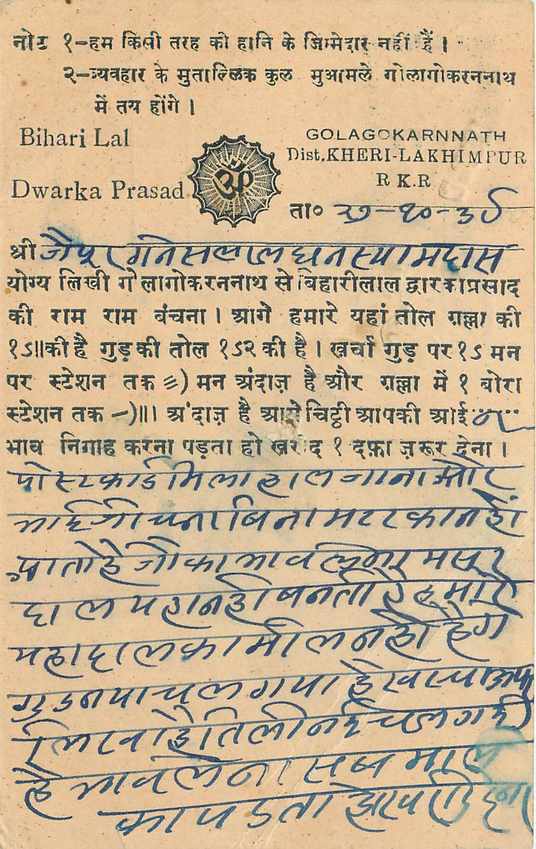 नोट १-हम किसी तरह की हानि के जिम्मेदार नहीं हैं।
२-व्यवहार के मुताल्लिक कुल मुआमले गोलागोकरननाथ
में तय होंगे।
Bihari Lal
Dwarka Prasad
ॐ
GOLAGOKARNNATH
Dist. KHERI-LAKHIMPUR
R K.R
ता०
श्री जैपुर गनेसलाल घनस्यामदास
योग्य लिखी गोलागोकरननाथ से बिहारीलाल द्वारकाप्रसाद
की राम राम बंचना। आगे हमारे यहां तोल ग़ल्ला की
१ऽ॥ की है गुड़ की तोल १ऽ२ की है। खर्चा गुड़ पर १ऽ मन
पर स्टेशन तक ≡) मन अंदाज़ है और ग़ल्ला में १ बोरा
स्टेशन तक -)॥। अंदाज़ है आगे चिट्ठी आपकी आई
भाव निगाह करना पड़ता हो खरीद १ दफ़ा ज़रूर देना।
पोस्टकार्ड मिला हाल जाना और
चना बिना मटर का नहीं
आता है जौ का भाव मसूर
दाल यहा नही बनती है हमारे
यहा दाल का मील नही हैगे
गुड नया चल गया है
लिखा है तिली नई चल गई
है भाव सब माल
का पडता